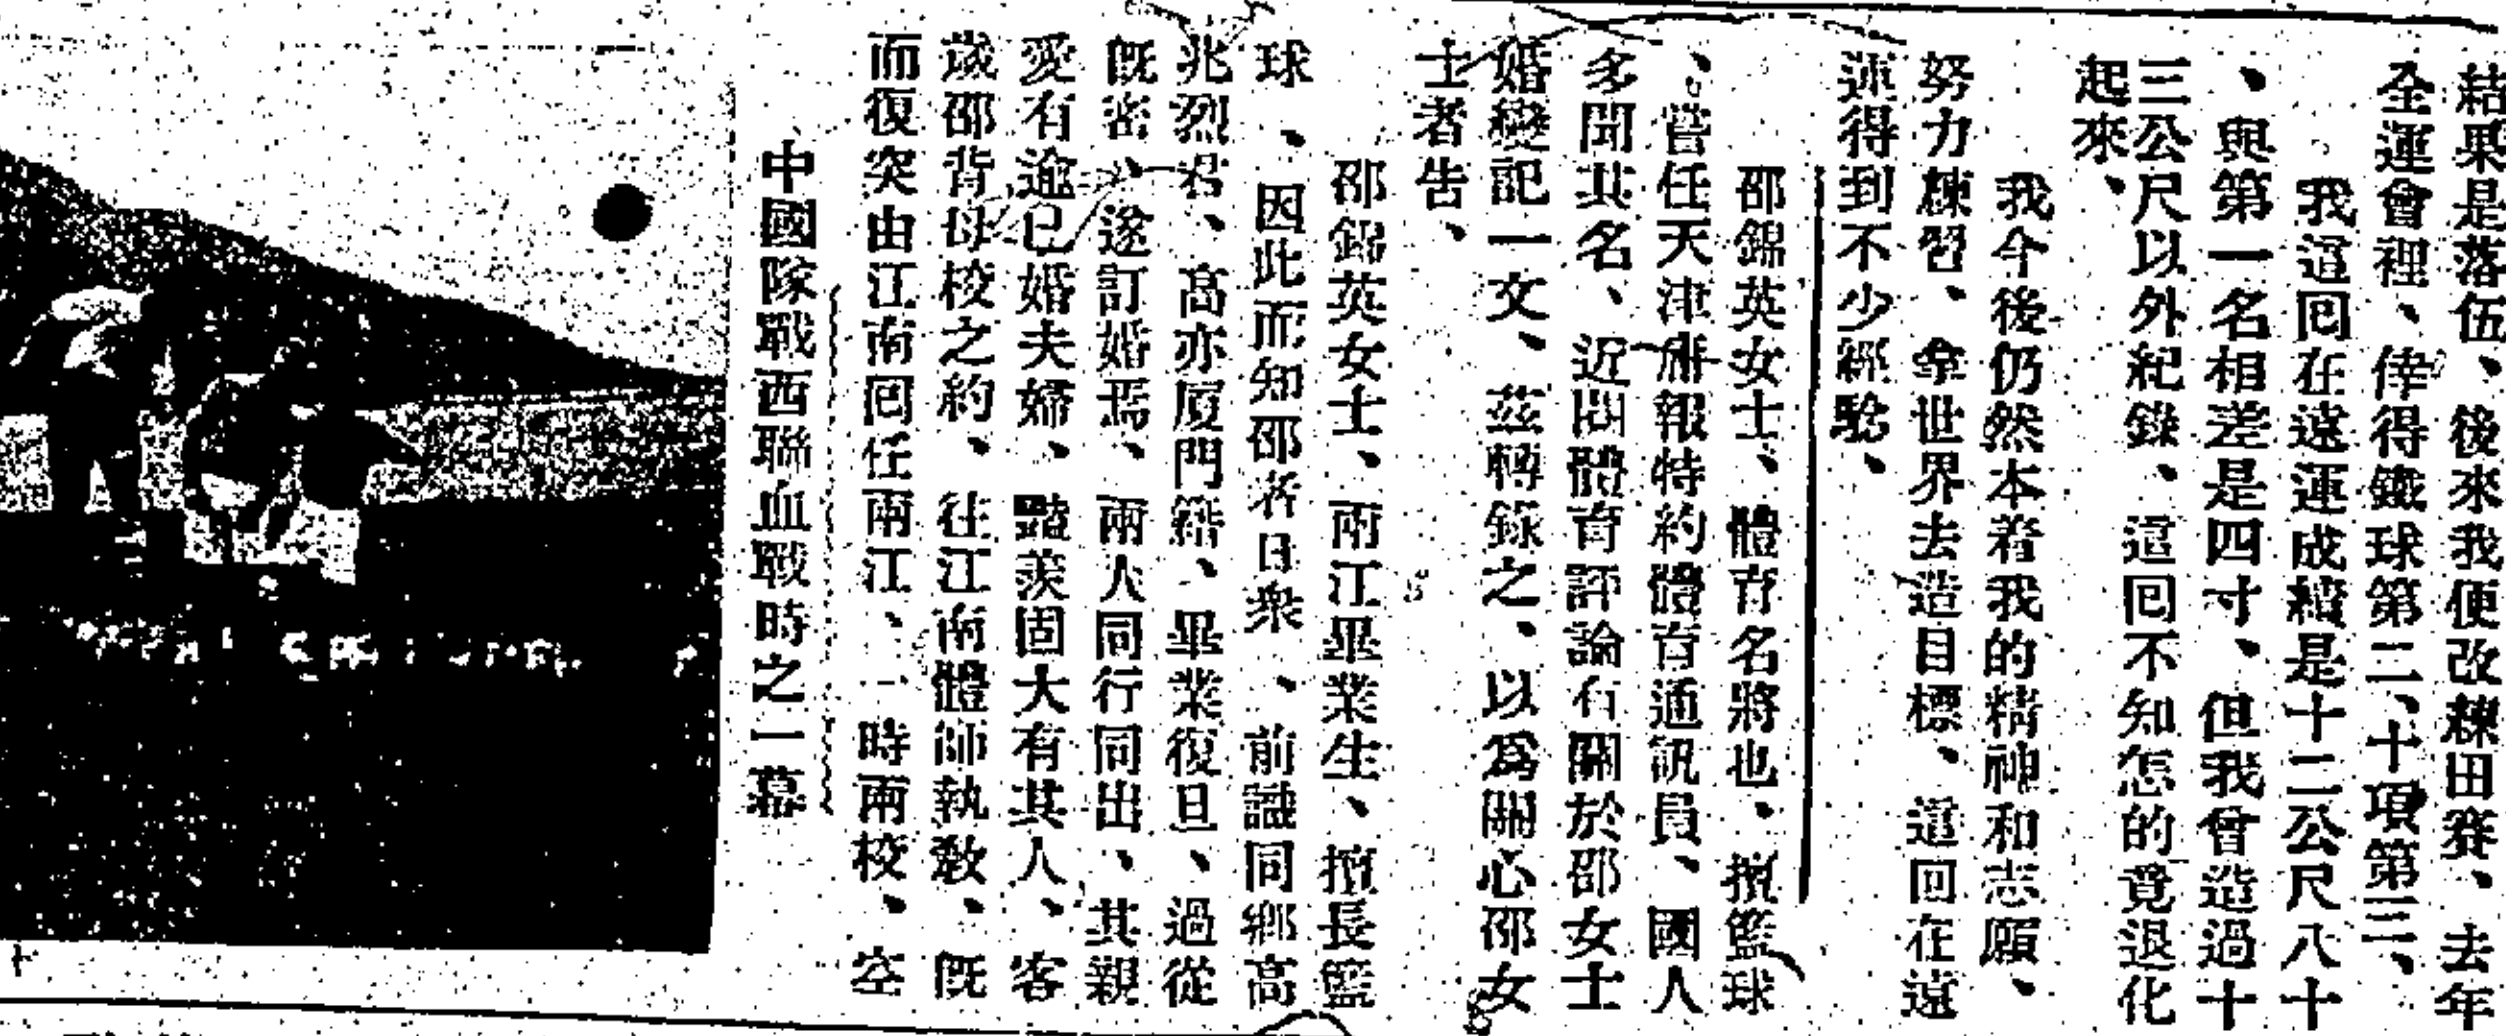 結果是落伍、後來我便改練田賽、去年
全運會裡、倖得鐵球第二、十項第三、
我這回在遠運成績是十二公尺八十
、與第一名相差是四寸、但我曾造過十
三公尺以外紀錄、這回不知怎的竟退化
起來、
我今後仍然本着我的精神和志願、
努力練習、拿世界去造目標、這回在遠
東得到不少經驗、
邵錦英女士、體育名將也、擅籃球
、嘗任天津 報特約體育通訊員、國人
多聞其名、近閱體育評論有關於邵女士
婚變記一文、茲轉錄之、以爲關心邵女
士者告、
邵錦英女士、兩江畢業生、擅長籃
球、因此而知邵者日衆、前識同鄉高
兆烈君、高亦厦門籍、畢業復旦、過從
旣密、遂訂婚焉、兩人同行同出、其親
愛有逾已婚夫婦、豔羨固大有其人、客
歲邵背母校之約、往江南體師執敎、旣
而復突由江南回任兩江、一時兩校、空
中國隊戰西聯血戰時之一幕